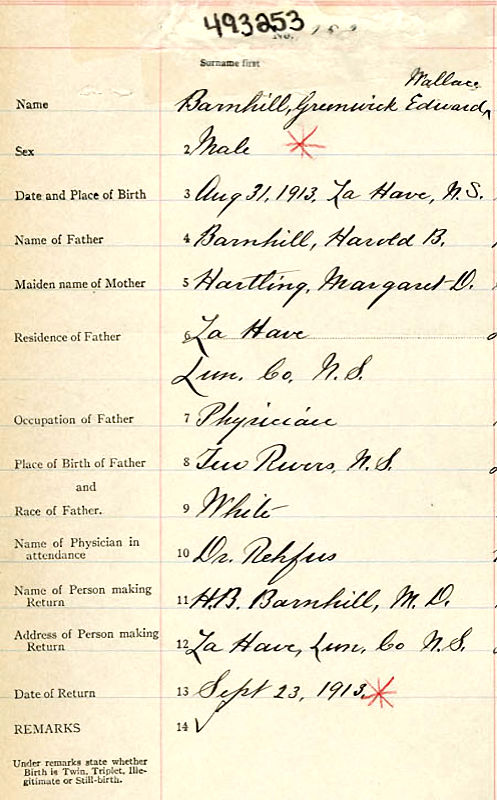 493253
No.
Surname first
Wallace
Name Barnhill, Greenwick Edward,
Sex 2 Male
Date and Place of Birth 3 Aug 31, 1913, La Have, N.S.
Name of Father 4 Barnhill, Harold B.
Maiden name of Mother 5 Hartling, Margaret D.
Residence of Father 6 La Have
Lun. Co. N.S.
Occupation of Father 7 Physician
Place of Birth of Father 8 Two Rivers, N.S.
and
Race of Father. 9 White
Name of Physician in
attendance 10 Dr. Rehfus
Name of Person making
Return 11 H.B. Barnhill, M.D.
Address of Person making
Return 12 La Have, Lun. Co N.S.
Date of Return 13 Sept 23, 1913
REMARKS 14
Under remarks state whether
Birth is Twin, Triplet, Ille-
gitimate or Still-birth.